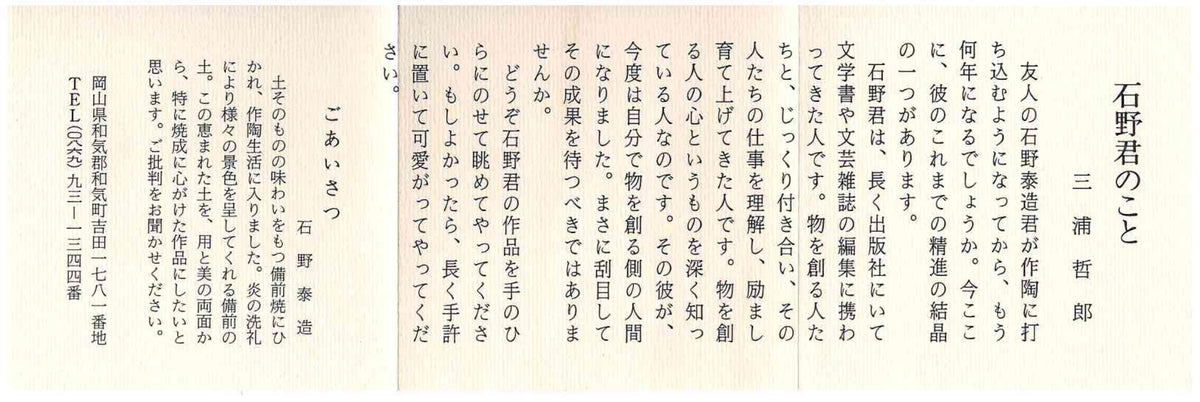 石野君のこと
三浦哲郎
友人の石野泰造君が作陶に打
ち込むようになってから、もう
何年になるでしょうか。今ここ
に、彼のこれまでの精進の結晶
の一つがあります。
石野君は、長く出版社にいて
文学書や文芸雑誌の編集に携わ
ってきた人です。物を創る人た
ちと、じっくり付き合い、その
人たちの仕事を理解し、励まし
育て上げてきた人です。物を創
る人の心というものを深く知っ
ている人なのです。その彼が、
今度は自分で物を創る側の人間
になりました。まさに刮目して
その成果を待つべきではありま
せんか。
どうぞ石野君の作品を手のひ
らにのせて眺めてやってくださ
い。もしよかったら、長く手許
に置いて可愛がってやってくだ
さい。
ごあいさつ
石野泰造
土そのものの味わいをもつ備前焼にひ
かれ、作陶生活に入りました。炎の洗礼
により様々の景色を呈してくれる備前の
土。この恵まれた土を、用と美の両面か
ら、特に焼成に心がけた作品にしたいと
思います。ご批判をお聞かせください。
岡山県和気郡和気町吉田一七八一番地
TEL(〇八六九)九三―一三四四番